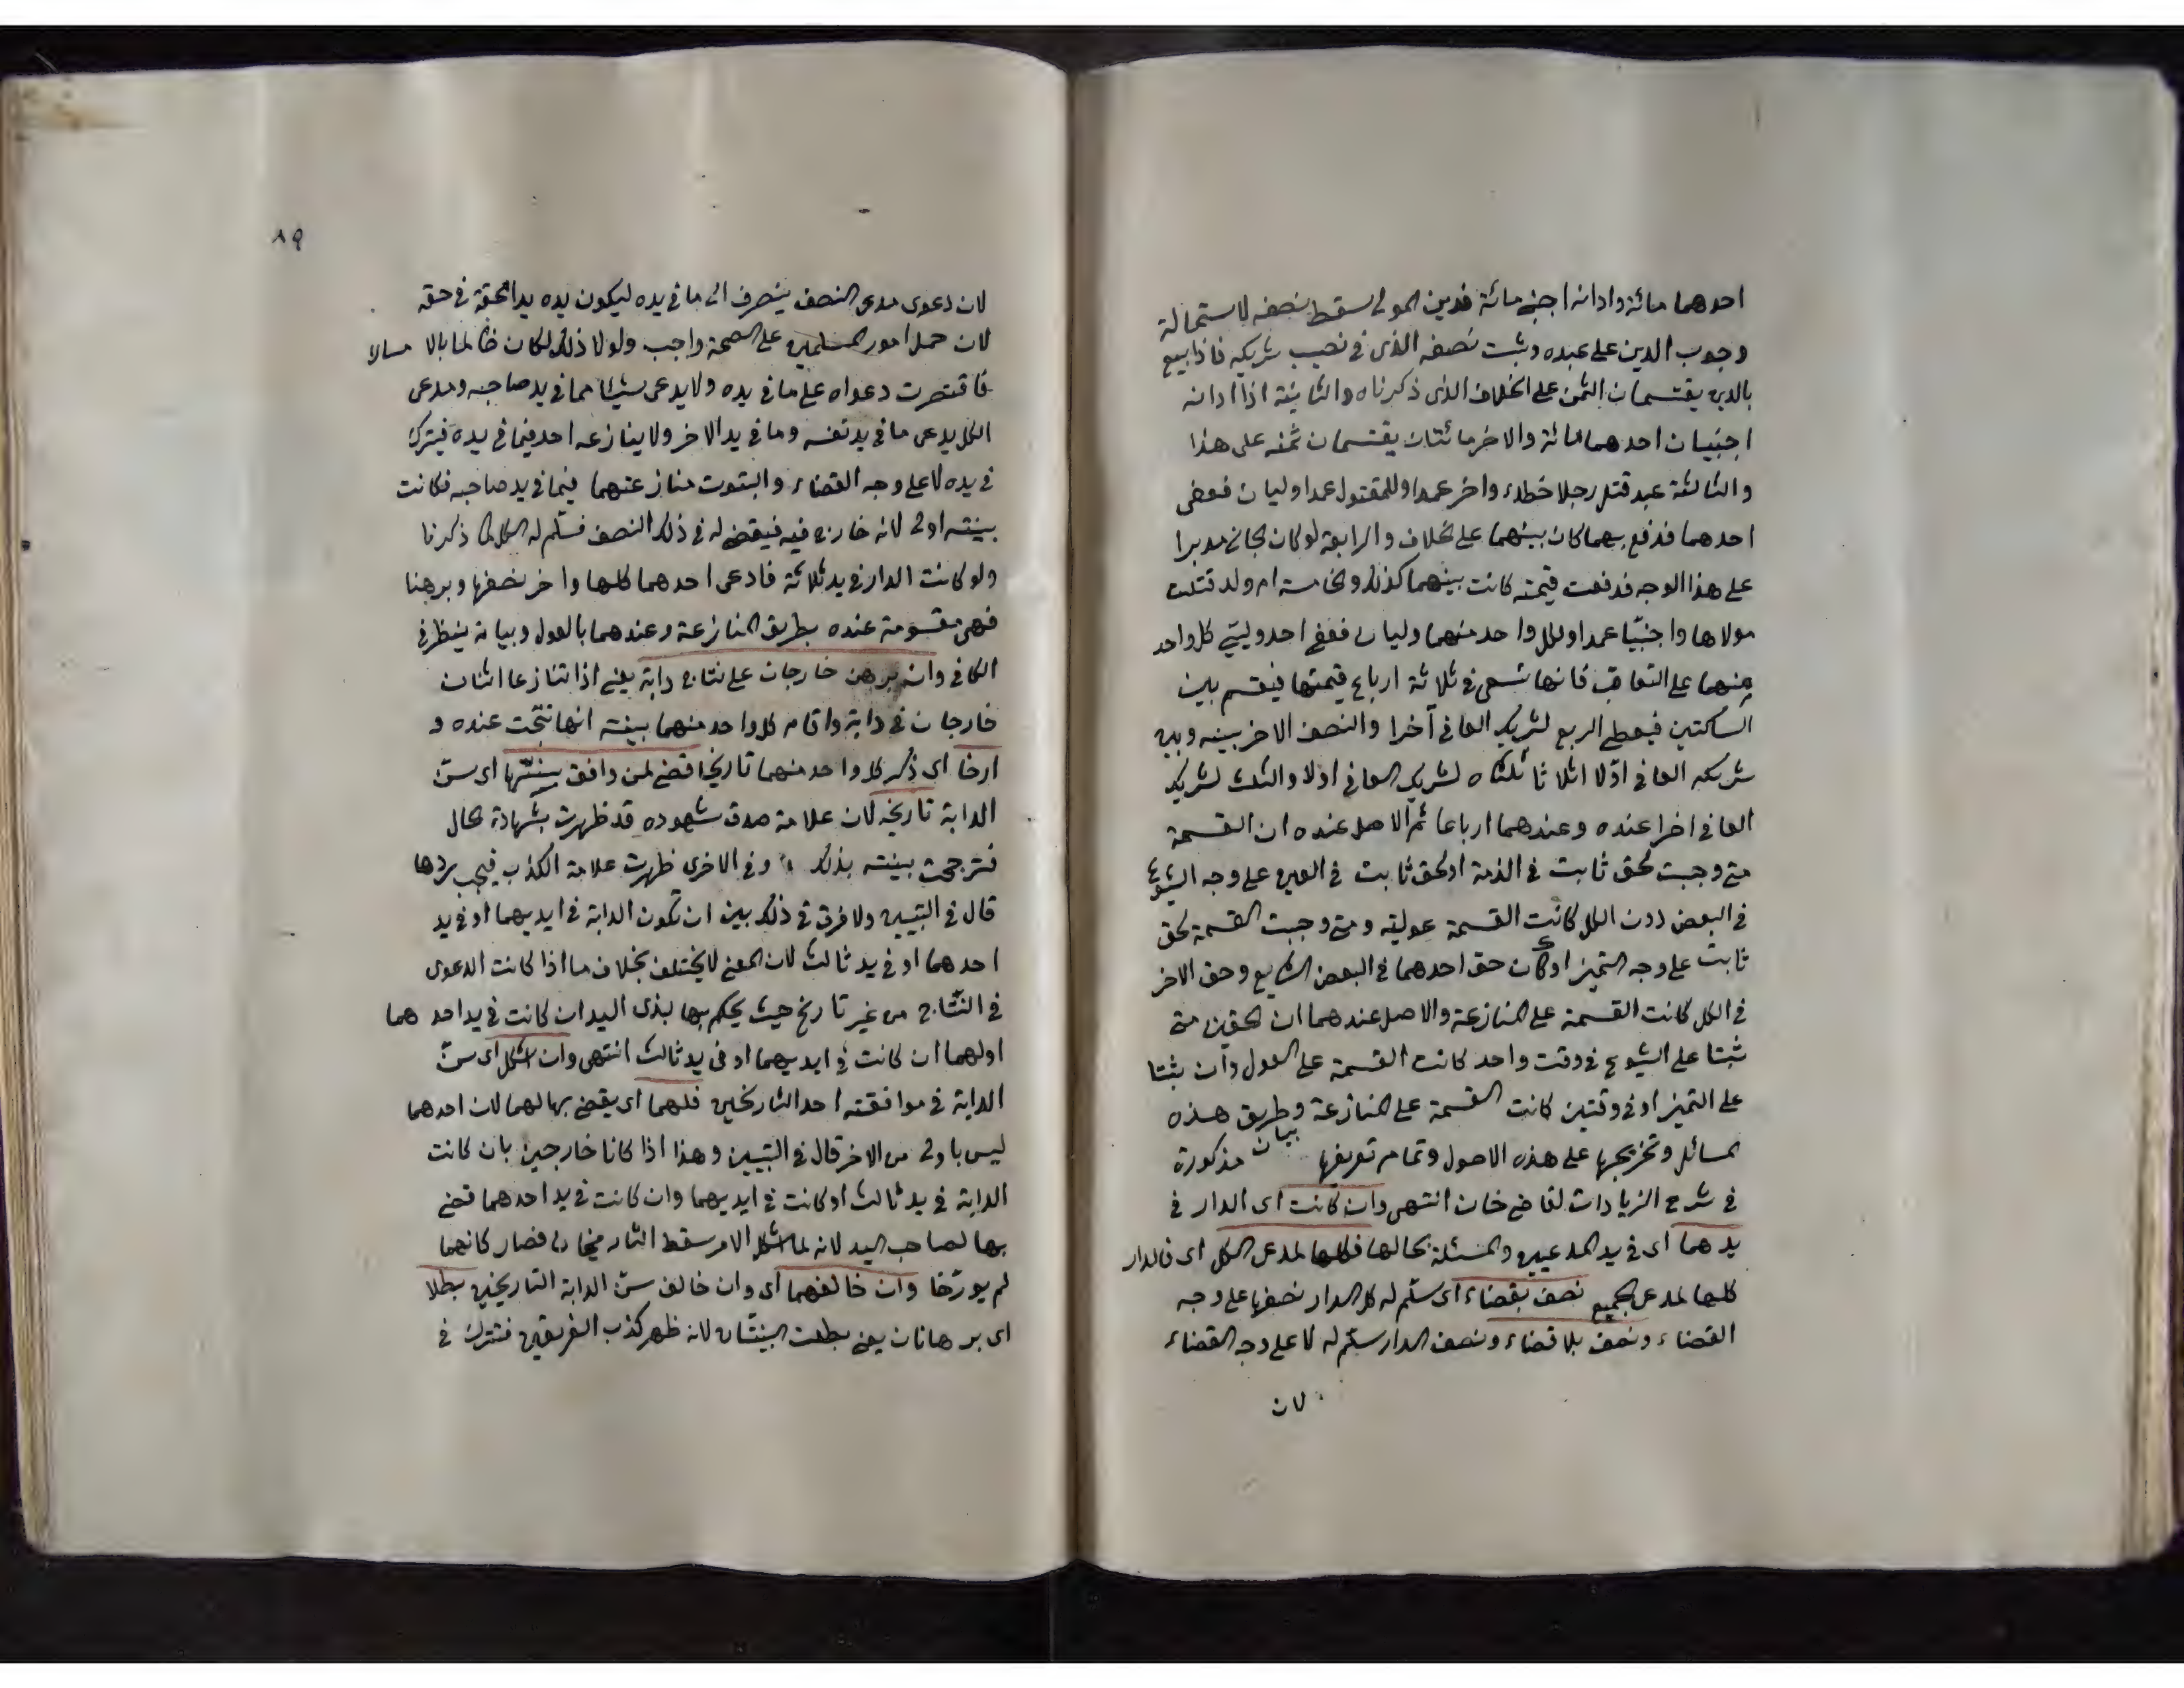 احدهما مائة وادانه اجنبي مائة فدين المولى سقط نصفه لاستحالة
وجوب الدين على عبده وثبت نصفه الذى في نصيب شريكه فاذا بيع
بالدين يقتسمان الثمن على الخلاف الذى ذكرناه والثانية اذا ادانه
اجنبيان احدهما مائة والاخر مائتان يقتسمان ثمنه على هذا
والثالثة عبد قتل رجلا خطاء واخر عمدا وللمقتول عمدا وليان فعفى
احدهما فدفع بهما كان بينهما على الخلاف والرابعة لو كان الجاني مدبرا
على هذا الوجه فدفعت قيمته كانت بينهما كذلك والخامسة ام ولد قتلت
مولاها واجنبيّا عمدا ولكل واحد منهما وليان فعفى احد وليي كل واحد
منهما على التعاقب فانها تسعى في ثلاثة ارباع قيمتها فيقسم بين
الساكتين فيعطى الربع لشريك العافي آخرا والنصف الاخر بينه وبين
شريكه العافي اوّلا اثلاثا ثلثاه لشريك العافي اولا والثلث لشريك
العافي اخرا عنده وعندهما ارباعا ثم الاصل عنده ان القسمة
متى وجبت لحق ثابت في الذمة او لحق ثابت في العين على وجه الشيوع
في البعض دون الكل كانت القسمة عولية ومتى وجبت القسمة لحق
ثابت على وجه التميز او كان حق احدهما في البعض الشايع وحق الاخر
في الكل كانت القسمة على المنازعة والاصل عندهما ان الحقين متى
ثبتا على الشيوع في وقت واحد كانت القسمة على العول وان ثبتا
على التميز او في وقتين كانت القسمة على المنازعة وبيان طريق هذه
المسائل وتخريجها على هذه الاصول وتمام تعريفها مذكورة
في شرح الزيادات لقاضي خان انتهى وان كانت اى الدار في
يدهما اى في يد المدعيين والمسئلة بحالها فكلها لمدعى الكل اى فالدار
كلها لمدعى الجميع نصف بقضاء اى سلّم له كل الدار نصفها على وجه
القضاء ونصف بلا قضاء ونصف الدار سلم له لا على وجه القضاء
لان
٨٩
لان دعوى مدعى النصف ينصرف الى ما في يده ليكون يده يدا محقة في حقه
لان حمل امور المسلمين على الصحة واجب ولولا ذلك لكان ظالما بالامساك
فاقتصرت دعواه على ما في يده ولا يدعى شيئا مما في يد صاحبه ومدعى
الكل يدعى ما في يد نفسه وما في يد الاخر ولا ينازعه احد فيما في يده فيترك
في يده لا على وجه القضاء والثبوت منازعتهما فيما في يد صاحبه فكانت
بينته اولى لانه خارج فيه فيقضى له في ذلك النصف فسلّم له الكل لما ذكرنا
ولو كانت الدار في يد ثلاثة فادعى احدهما كلها واخر نصفها وبرهنا
فهي مقسومة عنده بطريق المنازعة وعندهما بالعول وبيانه ينظر في
الكافي وان برهن خارجان على نتاج دابة يعني اذا تنازعا اثنان
خارجان في دابة واقام كل واحد منهما بينة انها نتجت عنده و
ارخا اى ذكر كل واحد منهما تاريخا قضى لمن وافق سنّها اى سنّ
الدابة تاريخه لان علامة صدق شهوده قد ظهرت بشهادة الحال
فترجحت بينته بذلك وفي الاخرى ظهرت علامة الكذب فيجب ردها
قال في التبيين ولا فرق في ذلك بين ان تكون الدابة في ايديهما او في يد
احدهما او في يد ثالث لان المعنى لا يختلف بخلاف ما اذا كانت الدعوى
في النتاج من غير تاريخ حيث يحكم بها لذى اليد ان كانت في يد احدهما
اولهما ان كانت في ايديهما او في يد ثالث انتهى وان اشكل اى سنّ
الدابة في موافقته احد التاريخين فلهما اى يقضى بها لهما لان احدهما
ليس باولى من الاخر قال في التبيين وهذا اذا كانا خارجين بان كانت
الدابة في يد ثالث او كانت في ايديهما وان كانت في يد احدهما قضى
بها لصاحب اليد لانه لما اشكل الامر سقط التاريخان فصار كانهما
لم يورّخا وان خالفهما اى وان خالف سنّ الدابة التاريخين بطلا
اى برهانان يعني بطلت البينتان لانه ظهر كذب الفريقين فتترك في